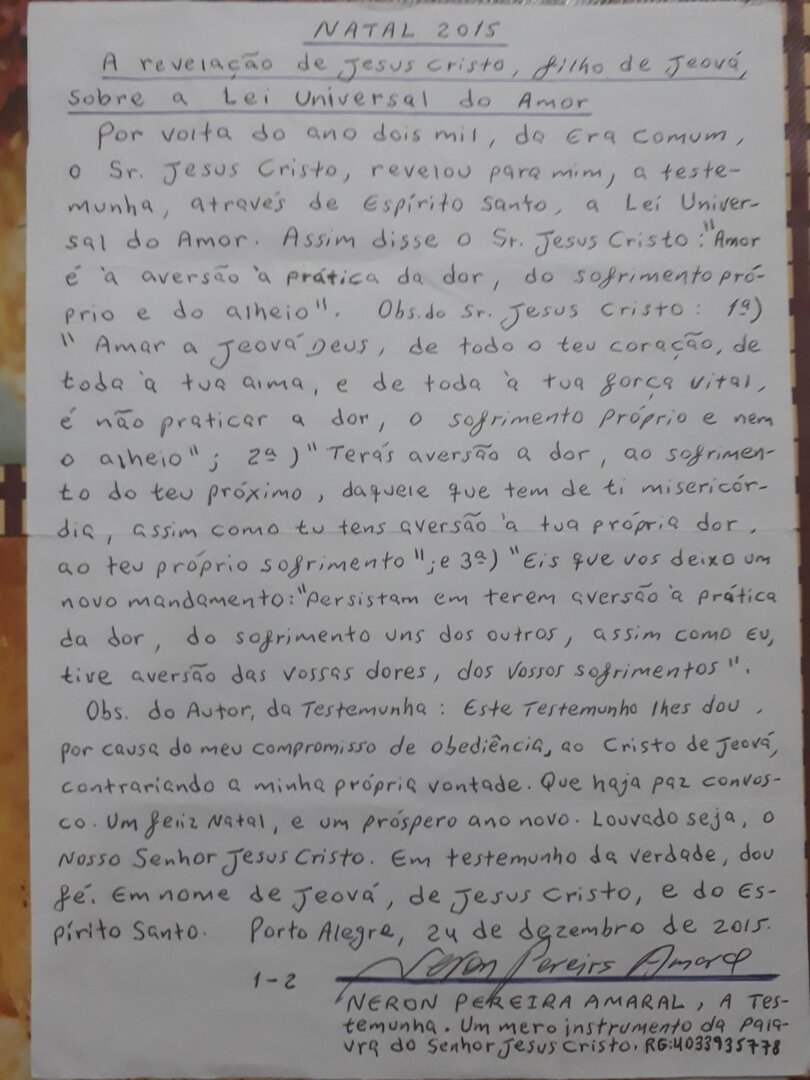 NATAL 2015
A revelação de Jesus Cristo, filho de Jeová,
sobre a Lei Universal do Amor
Por volta do ano dois mil, da Era Comum,
o Sr. Jesus Cristo, revelou para mim, a teste-
munha, através de Espírito Santo, a Lei Univer-
sal do Amor. Assim disse o Sr. Jesus Cristo: "Amor
é à aversão à prática da dor, do sofrimento pró-
prio e do alheio". Obs. do Sr. Jesus Cristo: 1ª)
" Amar a Jeová Deus, de todo o teu coração, de
toda à tua alma, e de toda à tua força vital,
é não praticar a dor, o sofrimento próprio e nem
o alheio"; 2ª) "Terás aversão a dor, ao sofrimen-
to do teu próximo, daquele que tem de ti misericór-
dia, assim como tu tens aversão à tua própria dor,
ao teu próprio sofrimento"; e 3ª) "Eis que vos deixo um
novo mandamento: "Persistam em terem aversão à prática
da dor, do sofrimento uns dos outros, assim como Eu,
tive aversão das vossas dores, dos vossos sofrimentos".
Obs. do Autor, da Testemunha: Este Testemunho lhes dou,
por causa do meu compromisso de obediência, ao Cristo de Jeová,
contrariando a minha própria vontade. Que haja paz convos-
co. Um feliz Natal, e um próspero ano novo. Louvado seja, o
Nosso Senhor Jesus Cristo. Em testemunho da verdade, dou
fé. Em nome de Jeová, de Jesus Cristo, e do Es-
pírito Santo. Porto Alegre, 24 de dezembro de 2015.
Neron Pereira Amaral
1-2
NERON PEREIRA AMARAL, A Tes-
temunha. Um mero instrumento da Pala-
vra do Senhor Jesus Cristo. RG:4033935778